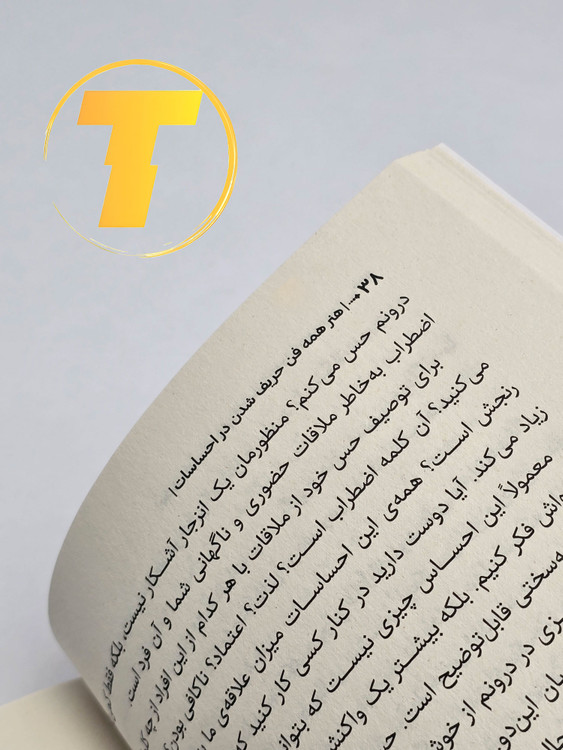 T
۳۸ ...| هنر همه فن حریف شدن در احساسات |
درونم حس می‌کنم؟ منظورمان یک انزجار آشکار نیست، بلکه فقط
اضطراب به‌خاطر ملاقات حضوری و ناگهانی شما و آن فرد است.
برای توصیف حس خود از ملاقات با هر کدام از این افراد از چه
می‌کنید؟ آن کلمه اضطراب است؟ لذت؟ اعتماد؟ ناکافی بودن؟
رنجش است؟ همه‌ی این احساسات میزان علاقه‌ی ما
زیاد می‌کند. آیا دوست دارید در کنار کسی کار کنید که
معمولاً این احساس چیزی نیست که
فکر کنیم. بلکه بیشتر یک واکنش
قابل‌توضیح است.
در درونم از
این‌دو